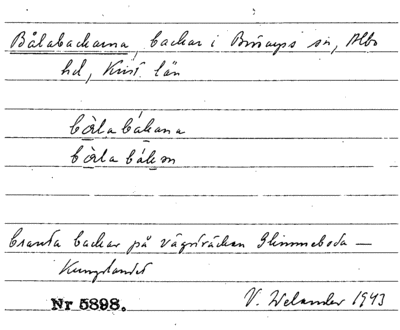 Bålabackarna, backar i Brösarps sn, Albo
hd, Krist. län
bòlabákana
bòlabákơn
branta backar på vägsträckan Glimmeboda —
Nr 5898.
V. Welander 1943